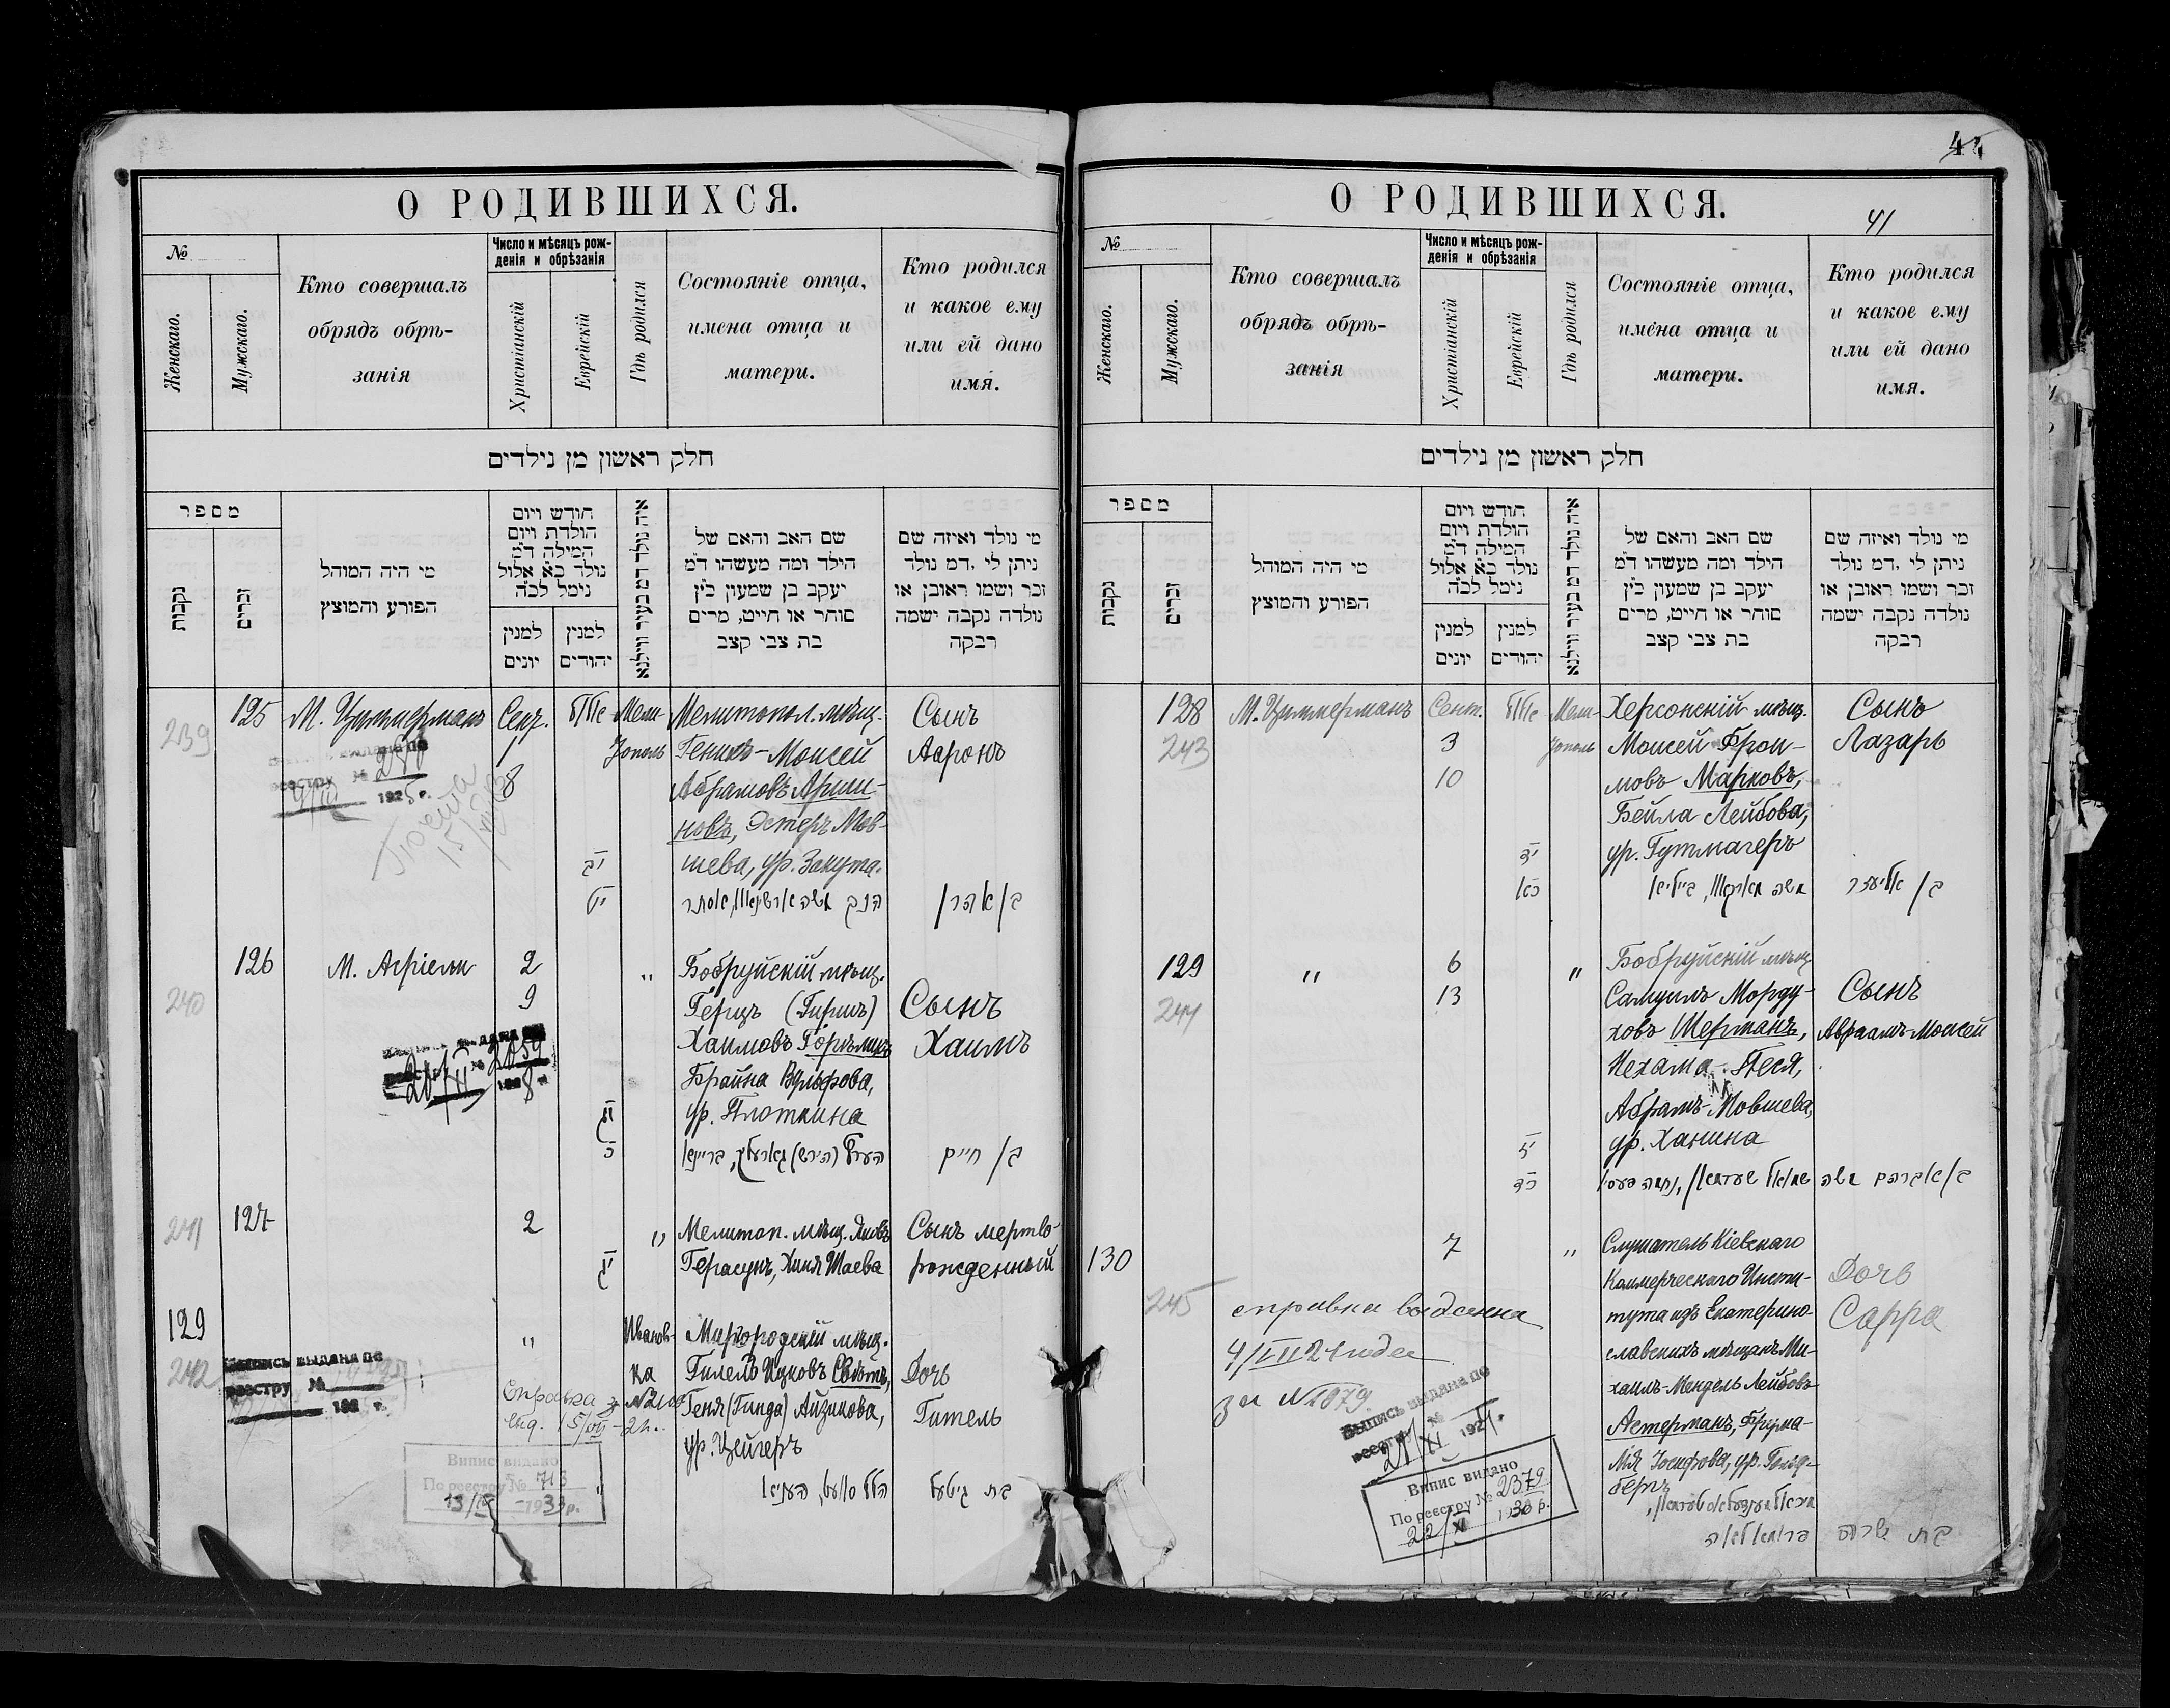 О РОДИВШИХСЯ.
№
Женскаго.
Мужскаго.
Кто совершалъ
обрядъ обрѣ-
занія
Число и мѣсяцъ рож-
денія и обрѣзанія
Христіанскій
Еврейскій
Гдѣ родился
Состояніе отца,
имена отца и
матери.
Кто родился
и какое ему
или ей дано
имя.
חלק ראשון מן נילדים
מספר
נקבות
זכרים
מי היה המוהל
הפורע והמוצץ
חודש ויום
הולדת ויום
המילה ד״מ
נולד כ״א אלול
נימל לכ״ה
למנין
יונים
למנין
יהודים
איה נולד דמ בעיר ווילנא
שם האב והאם של
הילד ומה מעשהו ד״מ
יעקב בן שמעון כ״ץ
סוחר או חייט, מרים
בת צבי קצב
מי נולד ואיזה שם
ניתן לי ,דמ נולד
זכר ושמו ראובן או
נולדה נקבה ישמה
רבקה
239
125
М. Циммерманъ
Сент.
1
8
אלול
יב
יט
Мели-
тополь
Мелитопол. мѣщ.
Генихъ-Моисей
Абрамовъ Арши-
новъ, Эстеръ Мов-
шева, ур. Закута.
Сынъ
Ааронъ
בן אהרן
1925 г.
240
126
М. Агріели
2
9
יג
כ
"
Бобруйскій мѣщ.
Герцъ (Гиршъ)
Хаимовъ Горѣликъ
Брайна Вульфова,
ур. Плоткина
Сынъ
Хаимъ
בן חיים
241
127
2
יג
"
Мелитоп. мѣщ. Яковъ
Герасунъ, Хиня Шаева
Сынъ мертво-
рожденный
129
242
"
Иванов-
ка
Миргородскій мѣщ.
Гилель Ицковъ Свѣтъ,
Геня (Гинда) Айзикова,
ур. Цейгеръ
Дочь
Гитель
בת גיטעל
Выпись выдана по
реестру №
192 г.
Справка з №2100
Випис видано
По реестру № 713
13/IX - 1933 р.
О РОДИВШИХСЯ.
41
№
Женскаго.
Мужскаго.
Кто совершалъ
обрядъ обрѣ-
занія
Число и мѣсяцъ рож-
денія и обрѣзанія
Христіанскій
Еврейскій
Гдѣ родился
Состояніе отца,
имена отца и
матери.
Кто родился
и какое ему
или ей дано
имя.
חלק ראשון מן נילדים
מספר
נקבות
זכרים
מי היה המוהל
הפורע והמוצץ
חודש ויום
הולדת ויום
המילה ד״מ
נולד כ״א אלול
נימל לכ״ה
למנין
יונים
למנין
יהודים
איה נולד דמ בעיר ווילנא
שם האב והאם של
הילד ומה מעשהו ד״מ
יעקב בן שמעון כ״ץ
סוחר או חייט, מרים
בת צבי קצב
מי נולד ואיזה שם
ניתן לי ,דמ נולד
זכר ושמו ראובן או
נולדה נקבה ישמה
רבקה
128
243
М. Циммерманъ
Сент.
3
10
אלול
יד
כא
Мели-
тополь
Херсонскій мѣщ.
Моисей Фрои-
мовъ Марковъ,
Бейла Лейбова,
ур. Гутмагеръ
משה מארקאוו, ביילא
Сынъ
Лазарь
בן אליעזר
129
244
"
6
13
יז
כד
"
Бобруйскій мѣщ.
Самуилъ Морду-
ховъ Шерманъ,
Нехама-Песя,
Абрамъ-Мовшева,
ур. Ханина
שמואל שערמאן, נחמה פעסי
Сынъ
Авраамъ Моисей
בן אברהם משה
130
245
7
"
Слушатель Кіевскаго
Коммерческаго Инсти-
тута изъ Екатерино-
славскихъ мѣщанъ Ми-
хаилъ-Мендель Лейбовъ
Астерманъ, Фрума-
Лія Іосифова, ур. Гольд-
бергъ
Дочь
Сарра
בת שרה
справка выданна
4/VII 21 года
за №1079.
Выпись выдана по
реестру №
21/XI 192 г.
Випис видано
По реестру № 2379
22/XI 1930 р.